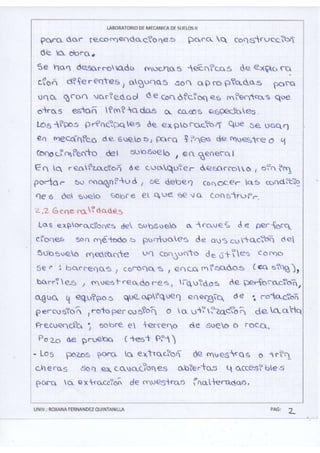 LABORATORIO DE MECANICA DE SUELOS II
para dar recomendaciones para la construcción
de la obra.
Se han desarrollado muchas técnicas de explora
ción diferentes, algunas son apropiadas para
una gran variedad de condiciones mientras que
otras están limitadas a casos especiales.
Los tipos principales de exploración que se usan
en mecánica de suelos, para fines de muestreo y
conocimiento del subsuelo, en general
En la realización de cualquier desarrollo, sin im
portar su magnitud, se deben conocer las condicio
nes del suelo sobre el que se va construir.
2.2 Generalidades
Las exploraciones del subsuelo a través de perfora
ciones son métodos puntuales de auscultación del
subsuelo mediante un conjunto de útiles como
ser: barrenas, coronas, encamisados (casing),
barriles, muestreadores, líquidos de perforación,
agua y equipos que apliquen energía de: rotación
percusión, rotopercusión o la utilización de la alta
frecuencia; sobre el terreno de suelo o roca.
Pozo de prueba (test Pit)
- Los pozos para la extración de muestras o trin
cheras son excavaciones abiertas y accesibles
para la extracción de muestras inalteradas.
UNIV.: ROXANA FERNANDEZ QUINTANILLA PAG: 2